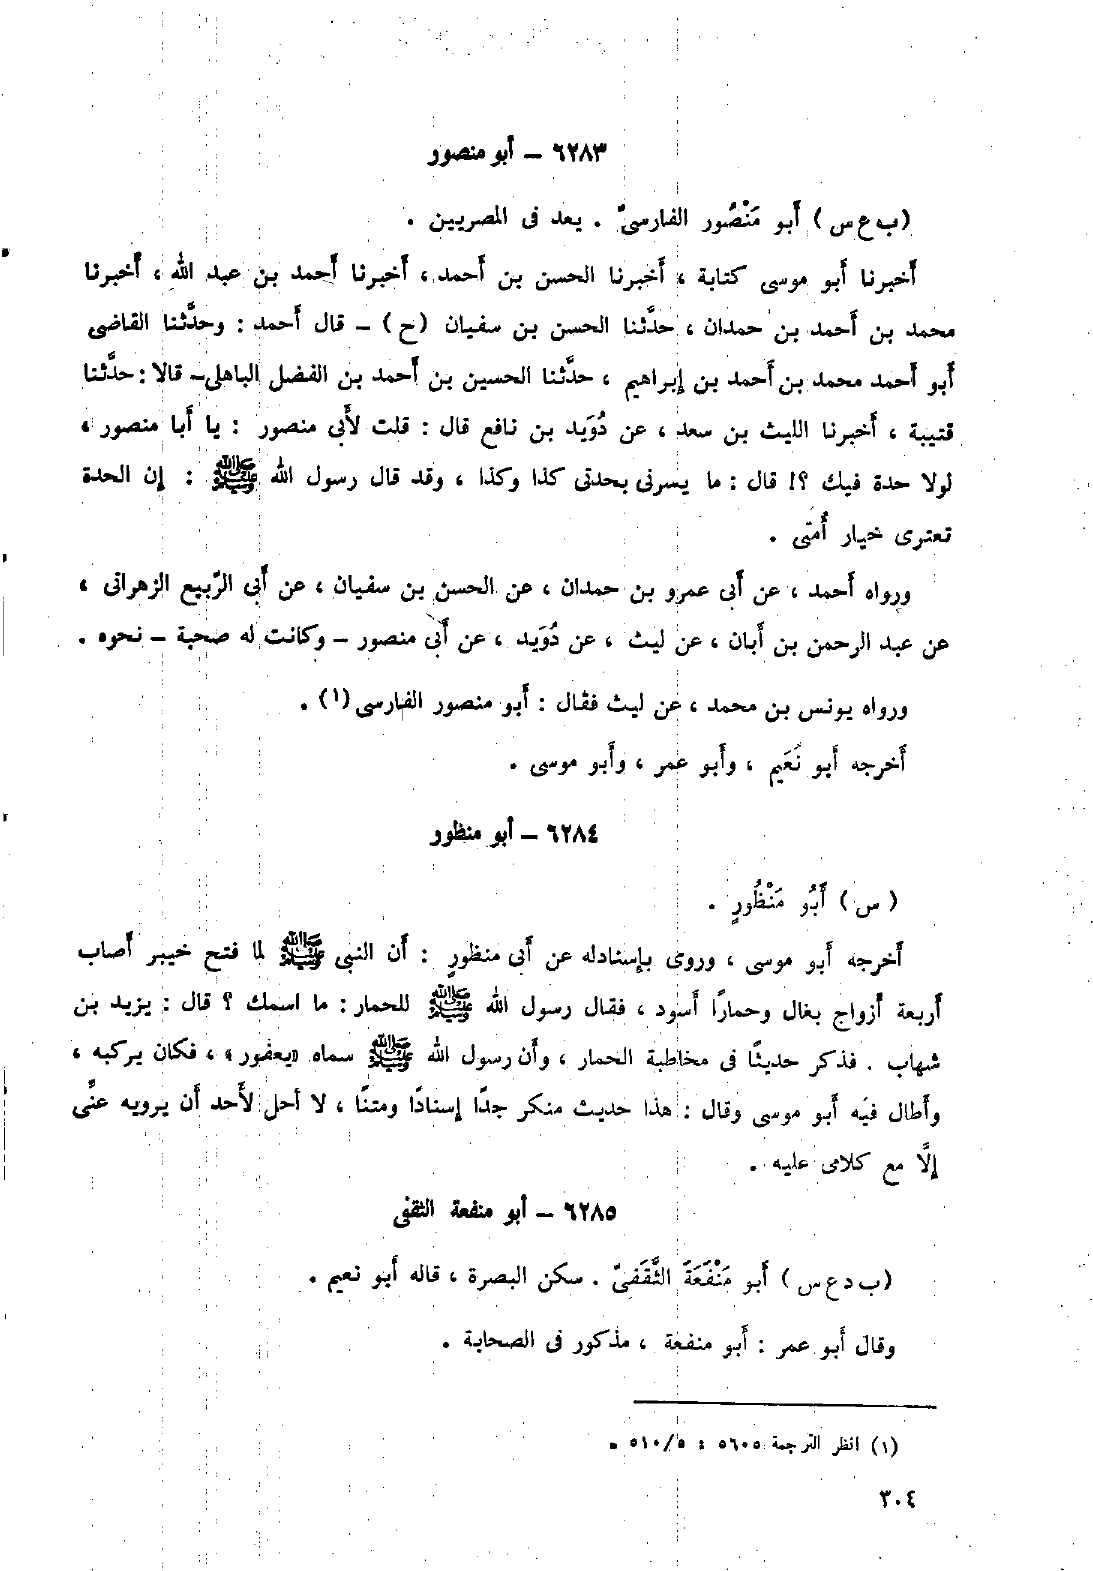 ٦٢٨٣ – أبو منصور
(ب ع س) أَبو مَنْصُور الفارسيّ . يعد فى المصريين .
أَخبرنا أَبو موسى كتابة ، أَخبرنا الحسن بن أَحمد ، أَخبرنا أَحمد بن عبد الله ، أَخبرنا
محمد بن أَحمد بن حمدان ، حدَّثنا الحسن بن سفيان (ح) – قال أَحمد : وحدَّثنا القاضى
أَبو أَحمد محمد بن أَحمد بن إِبراهيم ، حدَّثنا الحسين بن أَحمد بن الفضل الباهلى – قالا : حدَّثنا
قتيبة ، أَخبرنا الليث بن سعد ، عن دُوَيد بن نافع قال : قلت لأَبى منصور : يا أَبا منصور ،
لولا حدة فيك ؟! قال : ما يسرنى بحدتى كذا وكذا ، وقد قال رسول الله ﷺ : إن الحدة
تعترى خيار أُمتى .
ورواه أَحمد ، عن أَبى عمرو بن حمدان ، عن الحسن بن سفيان ، عن أَبى الرّبيع الزهرانى ،
عن عبد الرحمن بن أَبان ، عن ليث ، عن دُوَيد ، عن أَبى منصور – وكانت له صحبة – نحوه .
ورواه يونس بن محمد ، عن ليث فقال : أَبو منصور الفارسى (١) .
أَخرجه أَبو نُعَيم ، وأَبو عمر ، وأَبو موسى .
٦٢٨٤ – أبو منظور
( س ) أَبُو مَنْظُورٍ .
أَخرجه أَبو موسى ، وروى بإسنادله عن أَبى منظورٍ : أَن النبى ﷺ لما فتح خيبر أَصاب
أَربعة أَزواج بغال وحمارًا أَسود ، فقال رسول الله ﷺ للحمار : ما اسمك ؟ قال : يزيد بن
شهاب . فذكر حديثًا فى مخاطبة الحمار ، وأَن رسول الله ﷺ سماه «يعفور» ، فكان يركبه ،
وأَطال فيه أَبو موسى وقال : هذا حديث منكر جدًا إسنادًا ومتنًا ، لا أحل لأَحد أَن يرويه عنِّى
إلَّا مع كلامى عليه .
٦٢٨٥ – أبو منفعة الثقفى
(ب د ع س ) أَبو مَنْفَعَةَ الثَّقَفىّ . سكن البصرة ، قاله أَبو نعيم .
وقال أَبو عمر : أَبو منفعة ، مذكور فى الصحابة .
(١) انظر الترجمة ٥٦٠٥ : ٥١٠/٥ .
٣٠٤